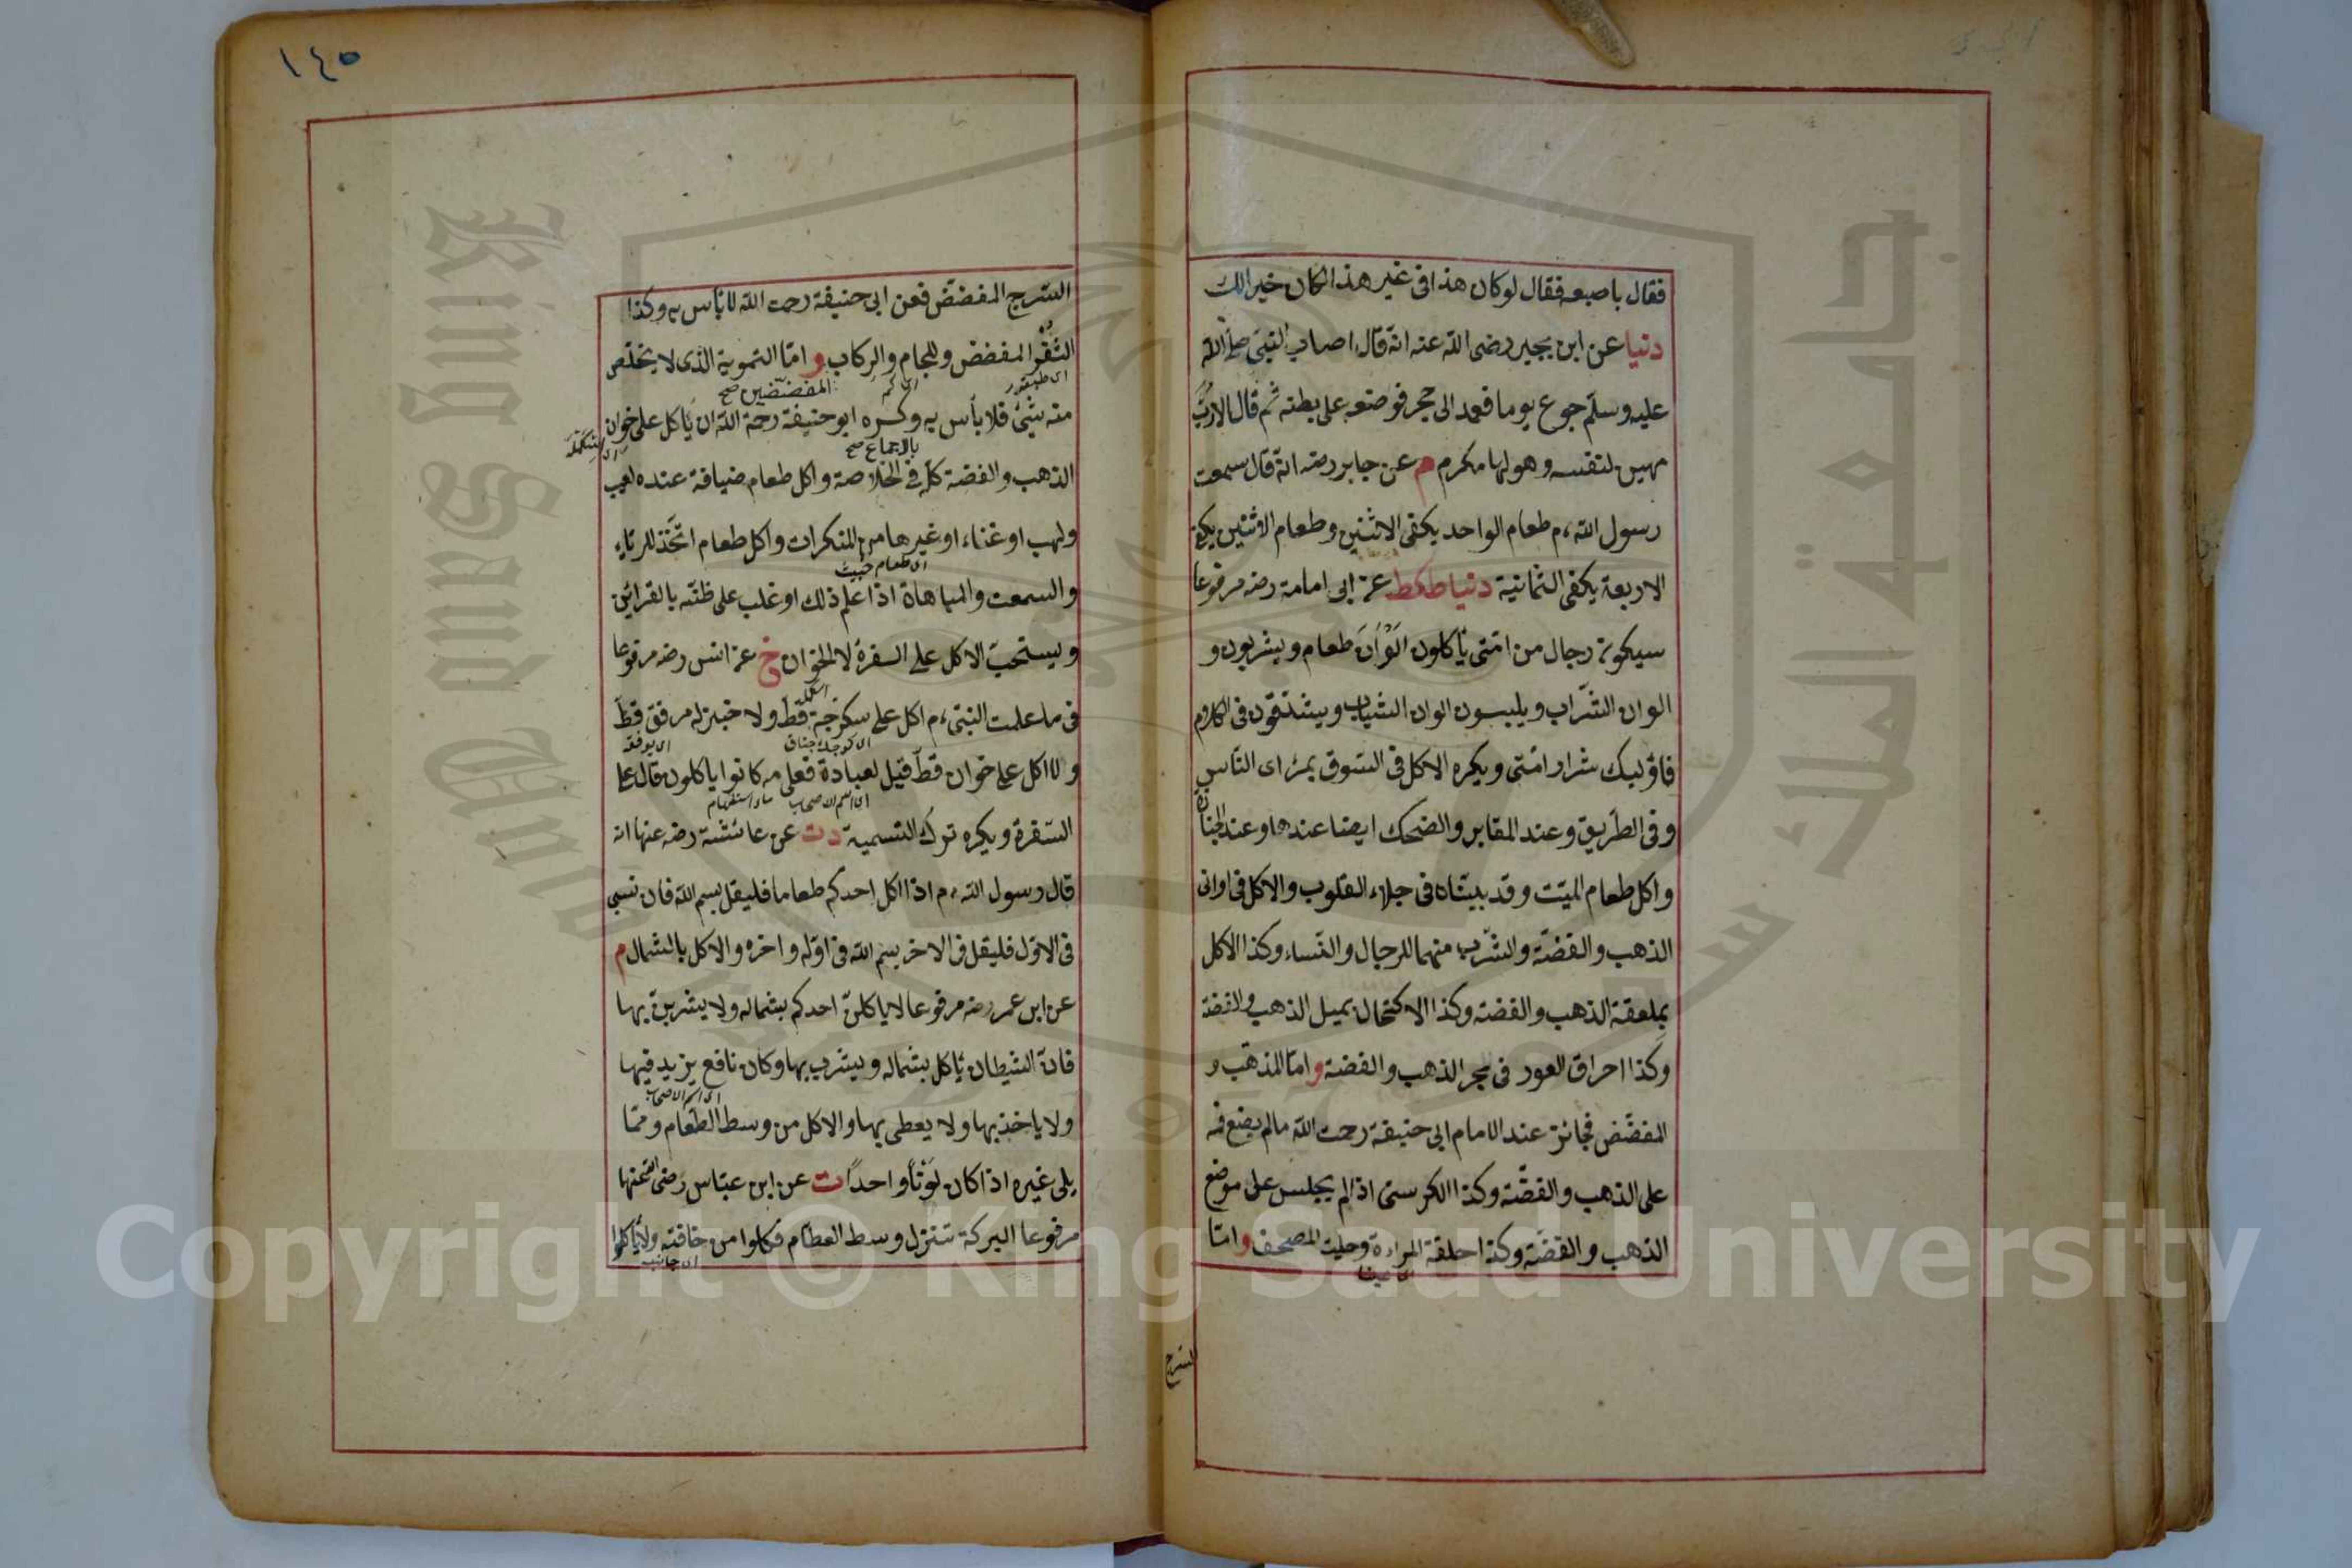 فقال باصبعه فقال لوكان هذا فى غير هذا المكان خيرا لك
دنيا عن ابن بجير رضى الله عنه انه قال اصاب النبى صلى الله
عليه وسلم جوع يوما فعمد الى حجر فوضعه على بطنه ثم قال الا رب
مهين لنفسه وهو لها مكرم م عن جابر رضه انه قال سمعت
رسول الله ء م طعام الواحد يكفى الاثنين وطعام الاثنين يكفى
الاربعة يكفى الثمانية دنيا طكط عن ابى امامة رضه مرفوعا
سيكون رجال من امتى يأكلون الوان طعام ويشربون و
الوان الشراب ويلبسون الوان الثياب ويتشدقون فى الكلام
فاولئك شرار امتى ويكره الاكل فى السوق بمرأى الناس
وفى الطريق وعند المقابر والضحك ايضا عندها وعند الجنازة
واكل طعام الميت وقد بيناه فى جلاء القلوب والاكل فى اوانى
الذهب والفضة والشرب منهما للرجال والنساء وكذا الاكل
بملعقة الذهب والفضة وكذا الاكتحال بميل الذهب والفضة
وكذا احراق العود فى مجمر الذهب والفضة واما المذهب و
المفضض فجائز عند الامام ابى حنيفة رحمت الله مالم يضع فمه
على الذهب والفضة وكذا الكرسى اذا لم يجلس على موضع
الذهب والفضة وكذا حلقة المراءة وحلية المصحف واما
السرج
١٤٥
السرج المفضض فعن ابى حنيفة رحمت الله لا بأس به وكذا
الثفر المفضض واللجام والركاب واما التمويه الذى لا يخلص
المفضضين صح
منه شئ فلا بأس به وكره ابو حنيفة رحمة الله ان يأكل على خوان
بالاجماع صح
الذهب والفضة كله فى الخلاصة واكل طعام ضيافة عنده لعب
ولهب او غناء او غيرها من المنكرات واكل طعام اتخذ للرياء
اى طعام خبيث
والسمعت والمباهاة اذا علم ذلك او غلب على ظنه بالقرائن
ويستحب الاكل على السفرة لا الخوان خ عن انس رضه مرفوعا
فى ما علمت النبى ء م اكل على سكرجة قط ولا خبز له مرفق قط
ولا اكل على خوان قط قيل لعبادة فعلى مه كانوا ياكلون قال على
السفرة ويكره ترك التسمية دت عن عائشة رضه عنها انه
قال رسول الله ء م اذا اكل احدكم طعاما فليقل بسم الله فان نسى
فى الاول فليقل فى الاخر بسم الله فى اوله واخره والاكل بالشمال م
عن ابن عمر رضه مرفوعا لا ياكلن احدكم بشماله ولا يشربن بها
فان الشيطان يأكل بشماله ويشرب بها وكان نافع يزيد فيها
ولا ياخذ بها ولا يعطى بها والاكل من وسط الطعام ومما
يلى غيره اذا كان لونا واحدا ت عن ابن عباس رضى الله عنها
مرفوعا البركة تنزل وسط الطعام فكلوا من حافته ولا يأكلوا
اى جانب
Copyright © King Saud University
جامعة الملك سعود
King Saud University